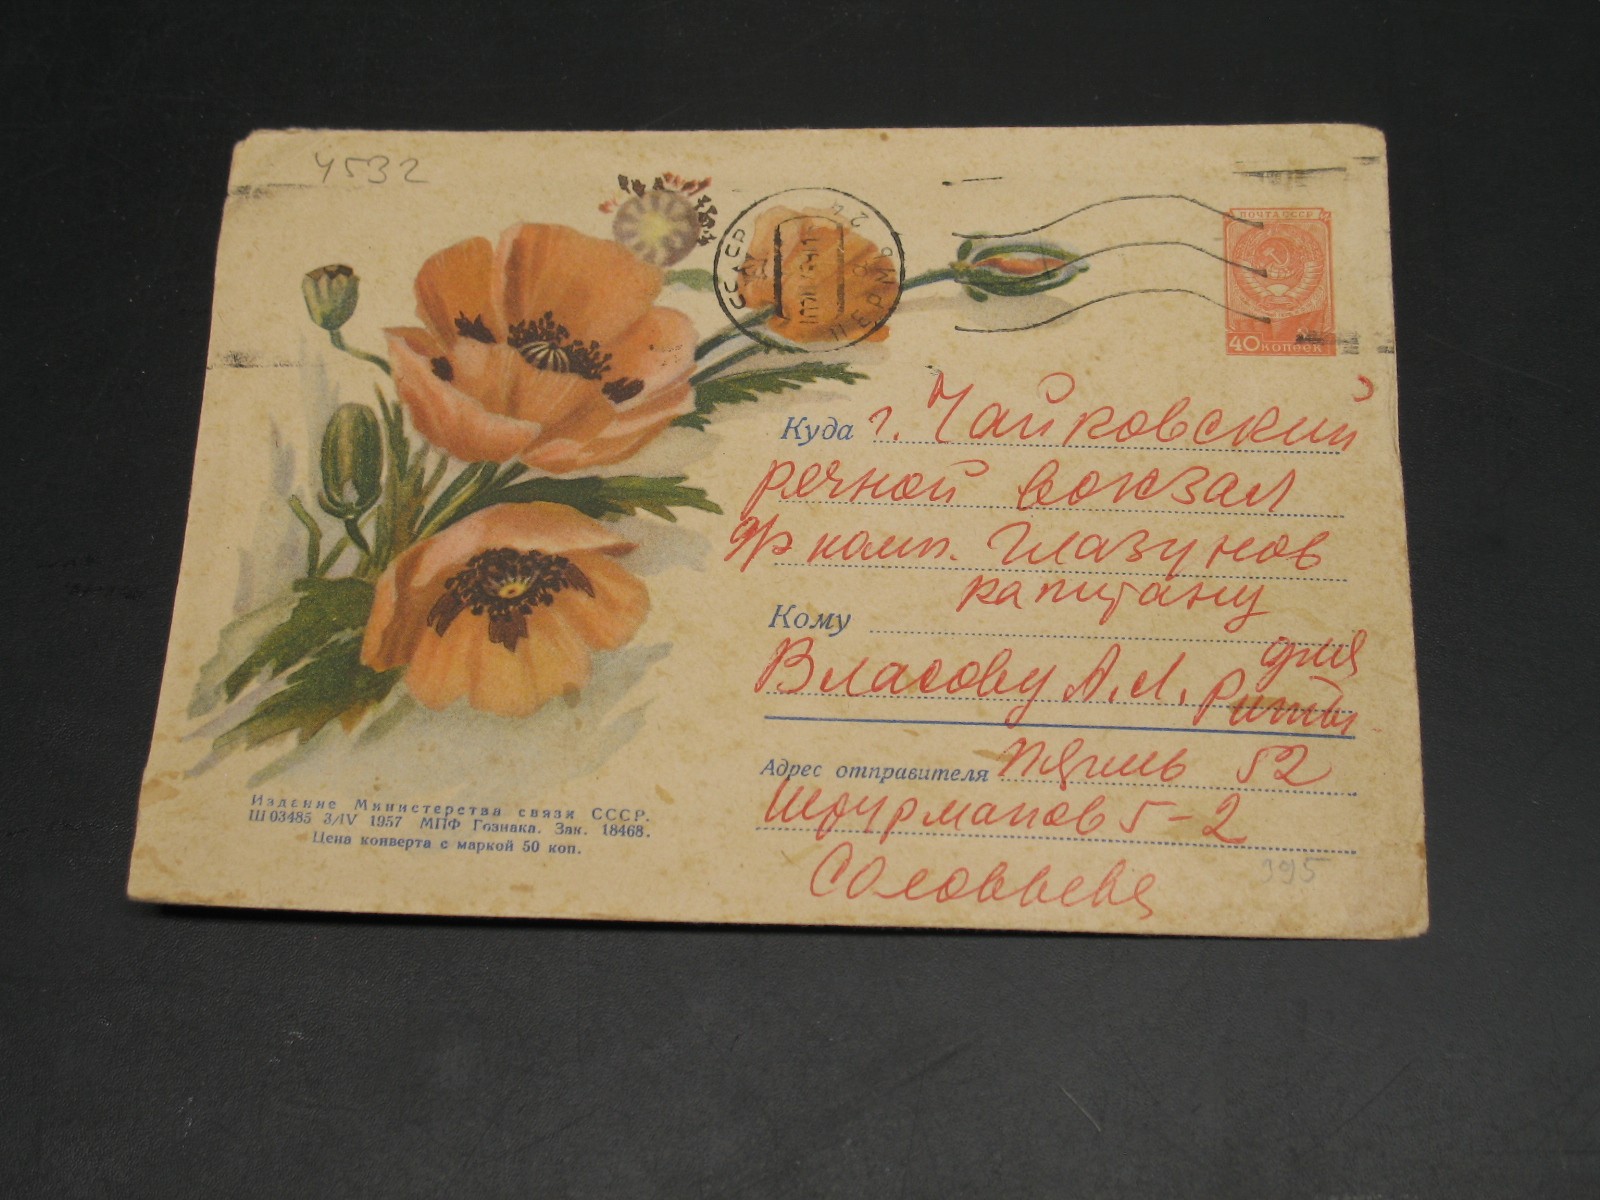 4532
ПОЧТА СССР
40 КОПЕЕК
СССР
ПЕРМЬ
Куда г. Чайковский
речной вокзал
комп. Глазунов
капитану
Кому
Власову А.Л. для
Риты
Адрес отправителя Пермь 52
5-2
Соловьева
395
Издание Министерства связи СССР.
Ш 03485 3/IV 1957 МПФ Гознака. Зак. 18468.
Цена конверта с маркой 50 коп.